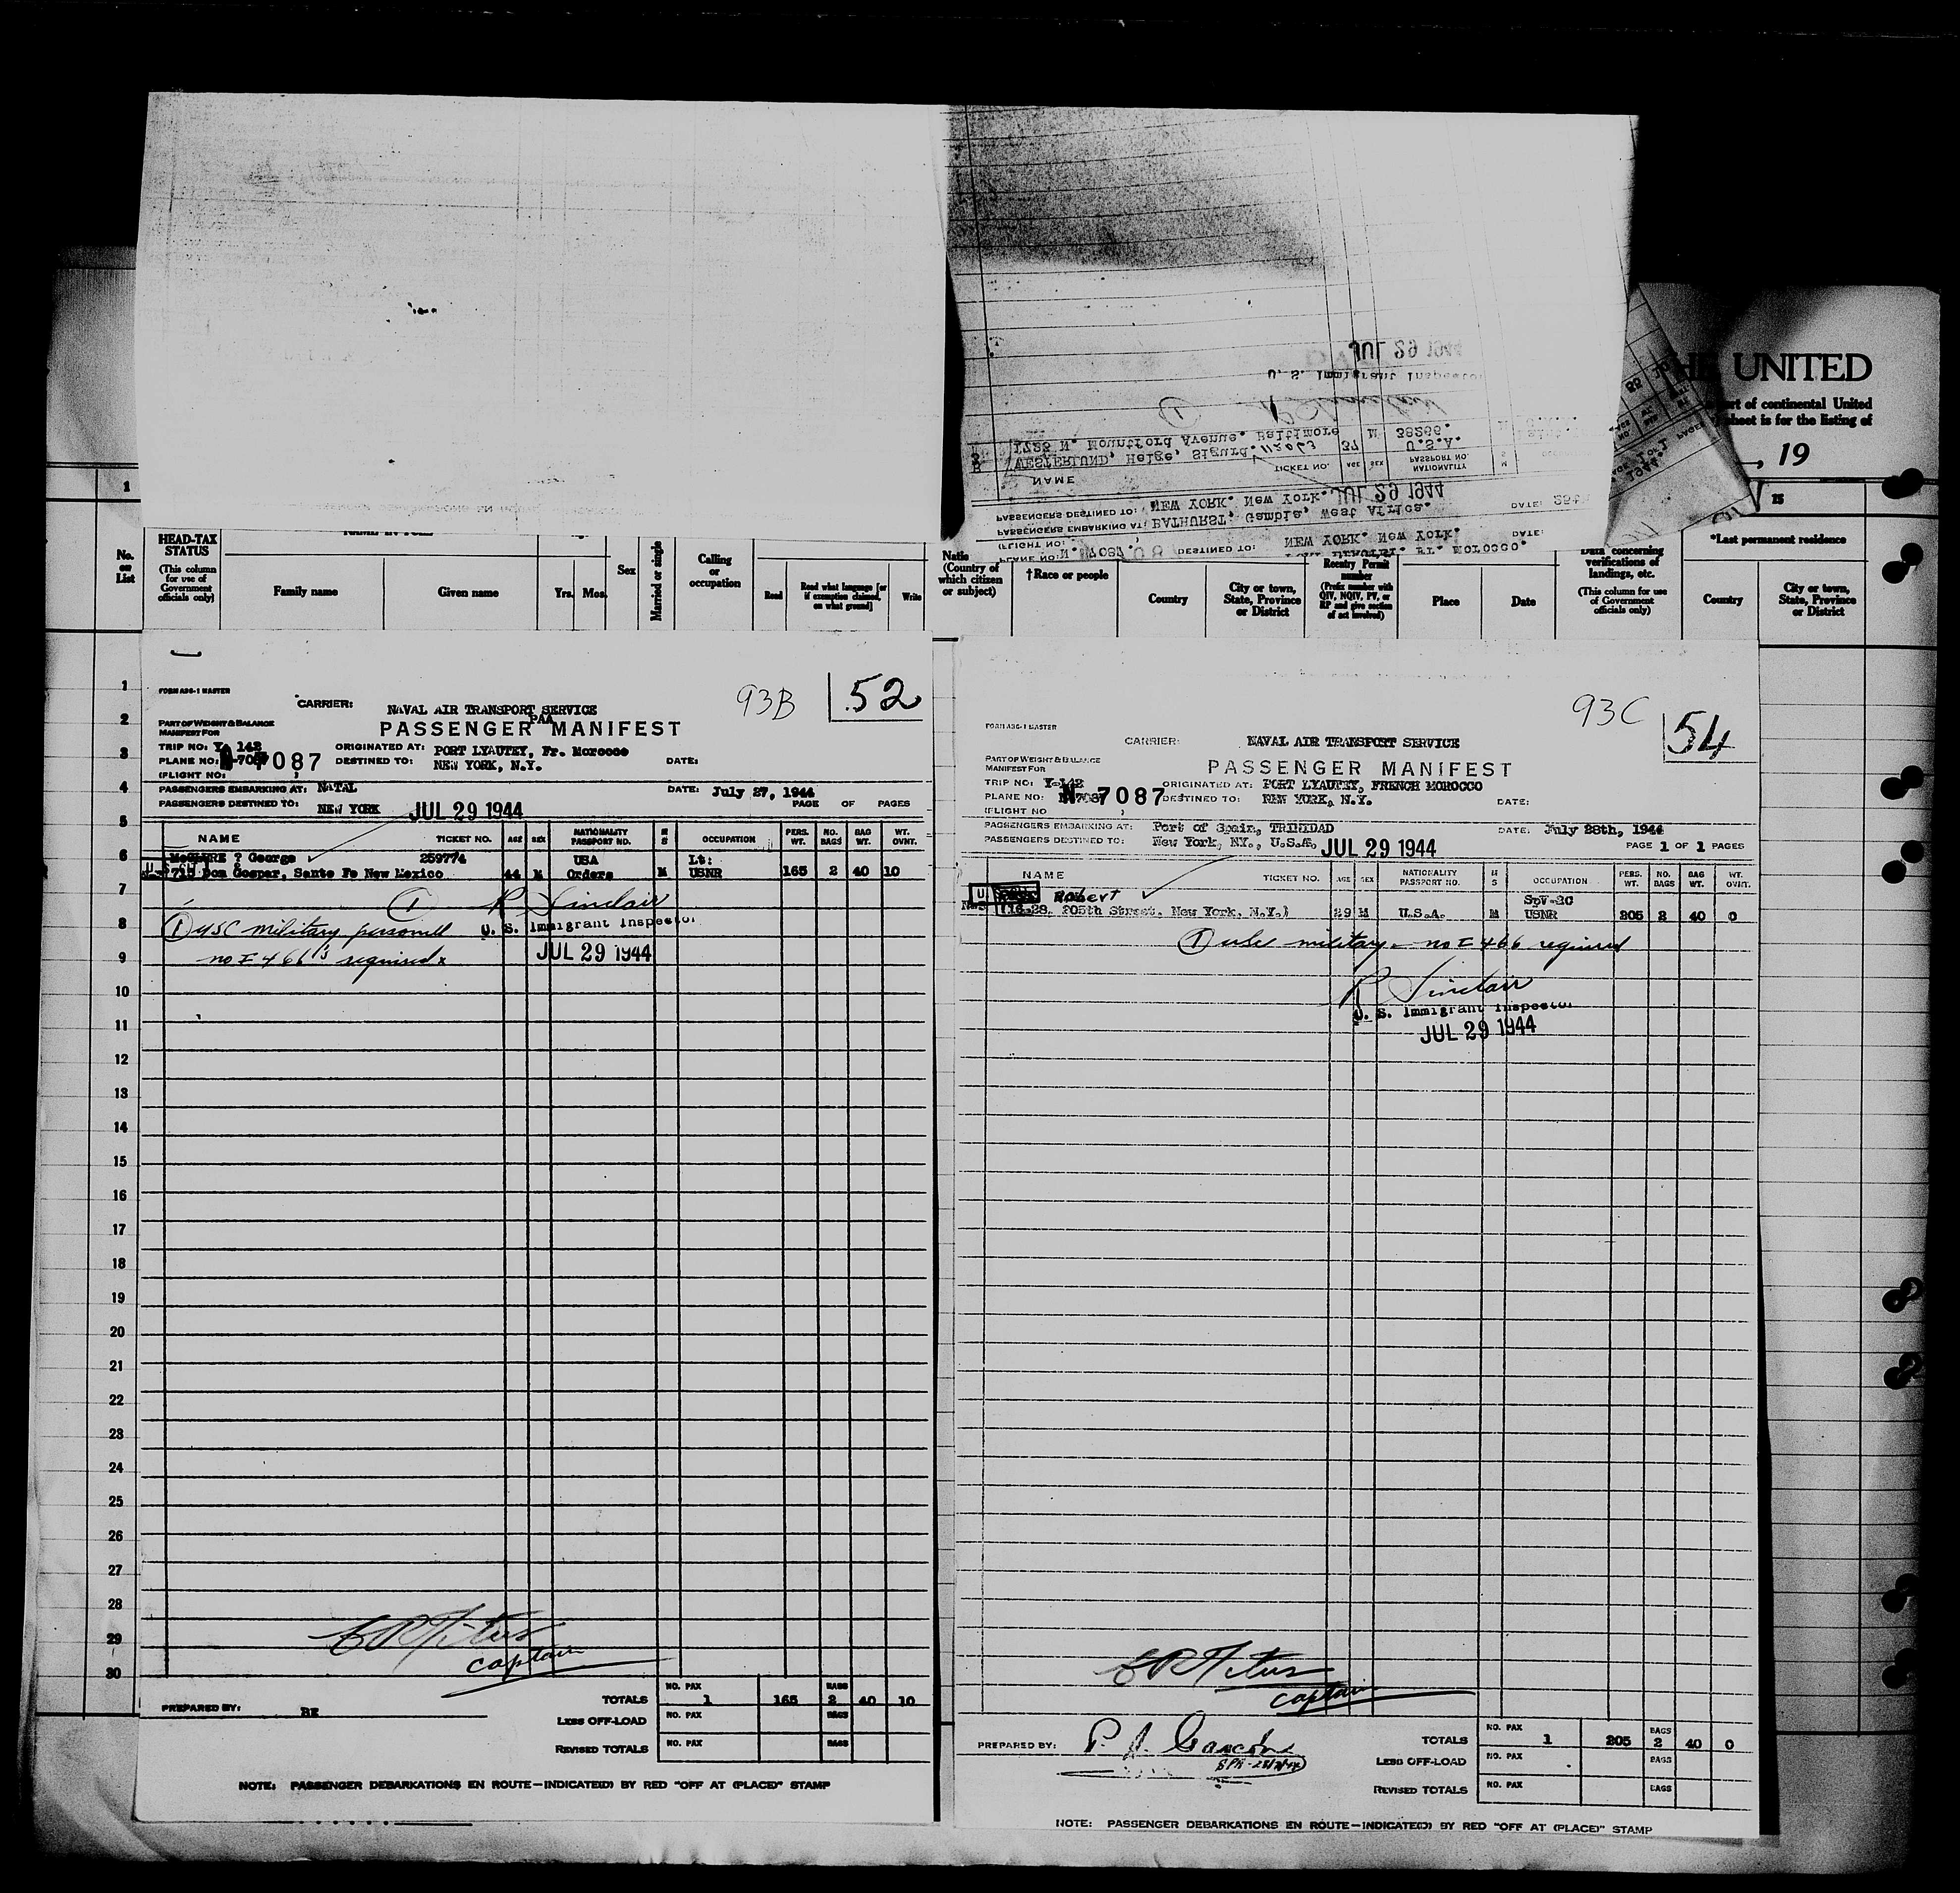 HE UNITED
rt of continental United
sheet is for the listing of
, 19
JUL 29 1944
U. S. Immigrant Inspector
1
1725 N. Mountford Avenue. Baltimore 37 M 38266. U.S.A.
WESTERLUND, Helge, Sigurd.
NAME TICKET NO. AGE SEX NATIONALITY PASSPORT NO.
PASSENGERS DESTINED TO: NEW YORK. New York. JUL 29 1944
PASSENGERS EMBARKING AT: BATHURST, Gambia, West Africa. DATE:
(FLIGHT NO: NEW YORK. New York. DATE:
PLANE NO: N. 7087 DESTINED TO:
1
15
No. on List
HEAD-TAX STATUS
(This column for use of Government officials only)
Family name
Given name
Yrs. Mos.
Sex
Married or single
Calling or occupation
Read
Read what language [or if exemption claimed, on what ground]
Write
(Country of which citizen or subject)
†Race or people
Country
City or town, State, Province or District
Reentry Permit number
(Prefix number with QIV, NQIV, PV, or RP and give section of act involved)
Place
Date
Data concerning verifications of landings, etc.
(This column for use of Government officials only)
*Last permanent residence
Country
City or town, State, Province or District
1
2
3
4
5
6
7
8
9
10
11
12
13
14
15
16
17
18
19
20
21
22
23
24
25
26
27
28
29
30
FORM ABG-1 MASTER
93B 52
CARRIER: NAVAL AIR TRANSPORT SERVICE
PAA
PART OF WEIGHT & BALANCE MANIFEST FOR
PASSENGER MANIFEST
TRIP NO: Y-142 ORIGINATED AT: PORT LYAUTEY, Fr. Morocco
PLANE NO: N-7087 7087 DESTINED TO: NEW YORK, N.Y. DATE:
(FLIGHT NO: )
PASSENGERS EMBARKING AT: NATAL DATE: July 27, 1944
PASSENGERS DESTINED TO: NEW YORK JUL 29 1944 PAGE OF PAGES
NAME TICKET NO. AGE SEX NATIONALITY PASSPORT NO. M S OCCUPATION PERS. WT. NO. BAGS BAG WT. WT. OVNT.
McCLURE ? George 259774 USA Lt:
715 Don Gospar, Santa Fe New Mexico 44 M Orders M USNR 165 2 40 10
1 R Sinclair
1 USC military personell U. S. Immigrant Inspector
no I 466's required JUL 29 1944
E R Titus
captain
PREPARED BY: BE
TOTALS NO. PAX 1 165 BAGS 2 40 10
LESS OFF-LOAD NO. PAX BAGS
REVISED TOTALS NO. PAX BAGS
NOTE: PASSENGER DEBARKATIONS EN ROUTE—INDICATE(D) BY RED "OFF AT (PLACE)" STAMP
FORM ABG-1 MASTER
93C 54
CARRIER: NAVAL AIR TRANSPORT SERVICE
PART OF WEIGHT & BALANCE MANIFEST FOR
PASSENGER MANIFEST
TRIP NO: Y-142 ORIGINATED AT: PORT LYAUTEY, FRENCH MOROCCO
PLANE NO: N-7087 N 7087 DESTINED TO: NEW YORK, N.Y. DATE:
(FLIGHT NO )
PASSENGERS EMBARKING AT: Port of Spain, TRINIDAD DATE: July 28th, 1944
PASSENGERS DESTINED TO: New York, NY., U.S.A. JUL 29 1944 PAGE 1 OF 1 PAGES
NAME TICKET NO. AGE SEX NATIONALITY PASSPORT NO. M S OCCUPATION PERS. WT. NO. BAGS BAG WT. WT. OVNT.
U Robert SpV-2C
(116-28, 205th Street, New York, N.Y.) 29 M U.S.A. M USNR 205 2 40 0
1 USC military - no I 466 required
R Sinclair
U. S. Immigrant Inspector
JUL 29 1944
E R Titus
captain
PREPARED BY:
TOTALS NO. PAX 1 205 BAGS 2 40 0
LESS OFF-LOAD NO. PAX BAGS
REVISED TOTALS NO. PAX BAGS
NOTE: PASSENGER DEBARKATIONS EN ROUTE—INDICATE(D) BY RED "OFF AT (PLACE)" STAMP